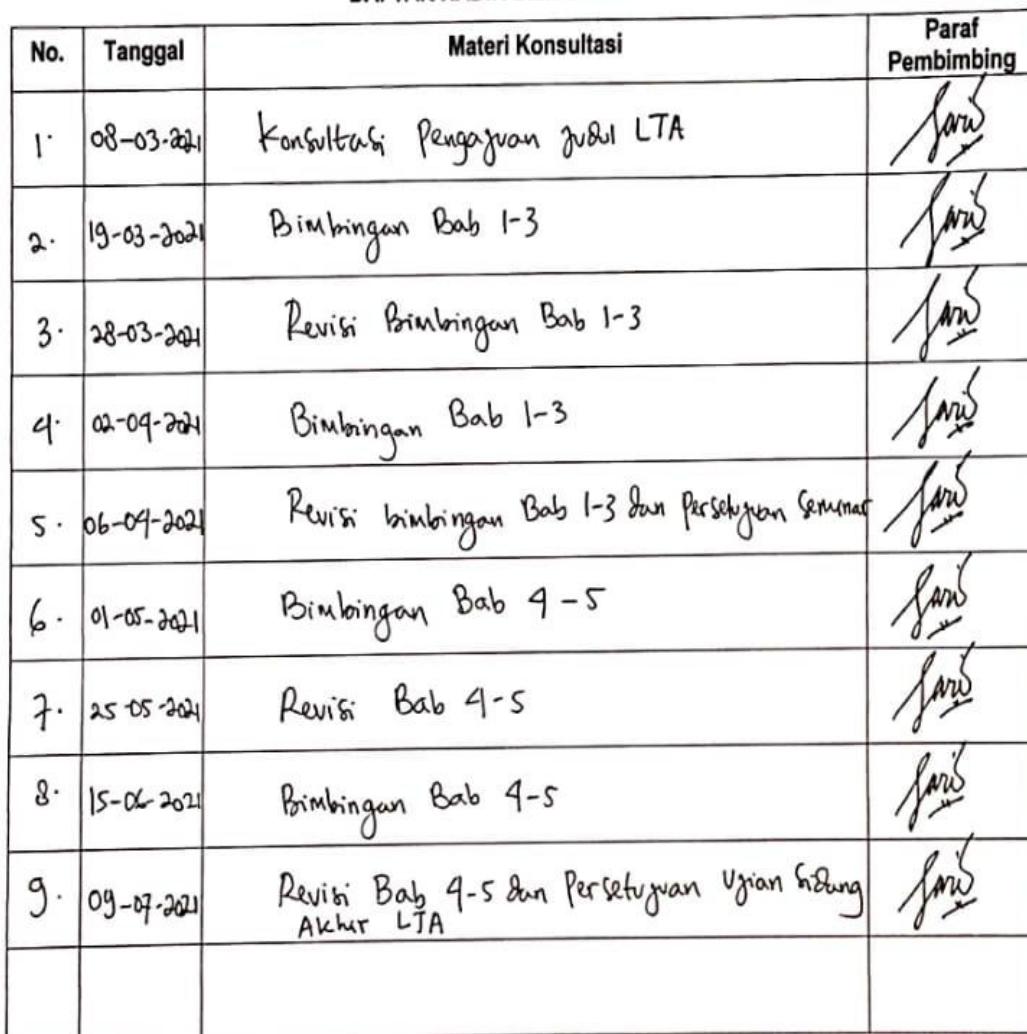 No. Tanggal Materi Konsultasi Paraf Pembimbing
1. 08-03-2021 Konsultasi Pengajuan judul LTA
2. 19-03-2021 Bimbingan Bab 1-3
3. 28-03-2021 Revisi Bimbingan Bab 1-3
4. 02-04-2021 Bimbingan Bab 1-3
5. 06-04-2021 Revisi bimbingan Bab 1-3 dan Persetujuan Seminar
6. 01-05-2021 Bimbingan Bab 4-5
7. 25-05-2021 Revisi Bab 4-5
8. 15-06-2021 Bimbingan Bab 4-5
9. 09-07-2021 Revisi Bab 4-5 dan Persetujuan Ujian Sidang
Akhir LTA